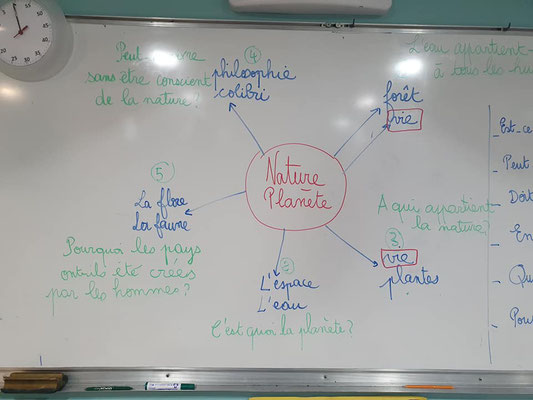 Peut
sans être conscient
de la nature?
4
philosophie
colibri
L'eau appartient-
à tous les hu
forêt
vie
Nature
Planète
5
La flore
La faune
Pourquoi les pays
ont-ils été créés
par les hommes?
L'espace
L'eau
C'est quoi la planète?
A qui appartient
la nature?
vie
plantes
- Est-ce
- Peut
- Doit
- En
- Qu
- Pou
55
5
10
15
20
25
30
35
40
45
50